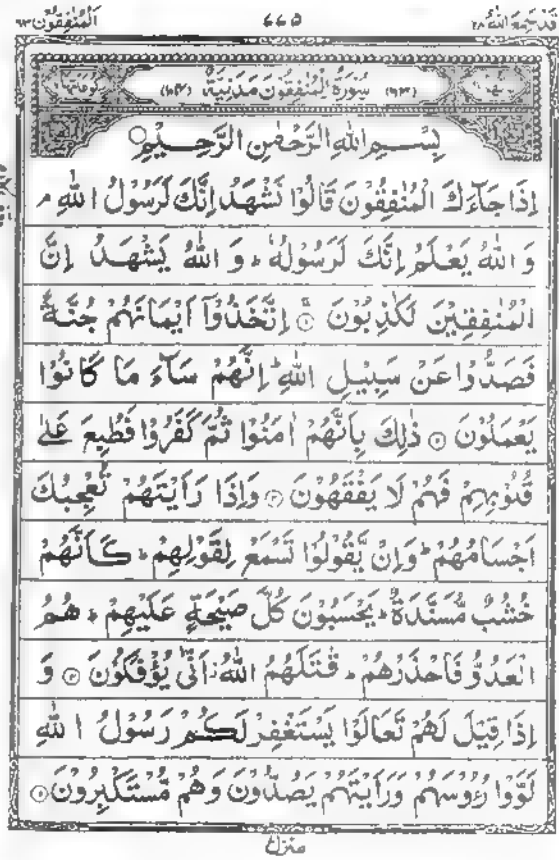 قد سمع الله ٢٨
٦٦٥
المنفقون ٦٣
(٦٣) سُوْرَةُ الْمُنٰفِقُوْنَ مَدَنِيَّةٌ
بِسْمِ اللّٰهِ الرَّحْمٰنِ الرَّحِيْمِ○
اِذَا جَآءَكَ الْمُنٰفِقُوْنَ قَالُوْا نَشْهَدُ اِنَّكَ لَرَسُوْلُ اللّٰهِ ۘ
وَ اللّٰهُ يَعْلَمُ اِنَّكَ لَرَسُوْلُهٗ ؕ وَ اللّٰهُ يَشْهَدُ اِنَّ
الْمُنٰفِقِيْنَ لَكٰذِبُوْنَ ۝۱ اِتَّخَذُوْۤا اَيْمَانَهُمْ جُنَّةً
فَصَدُّوْا عَنْ سَبِيْلِ اللّٰهِ ؕ اِنَّهُمْ سَآءَ مَا كَانُوْا
يَعْمَلُوْنَ ۝۲ ذٰلِكَ بِاَنَّهُمْ اٰمَنُوْا ثُمَّ كَفَرُوْا فَطُبِعَ عَلٰى
قُلُوْبِهِمْ فَهُمْ لَا يَفْقَهُوْنَ ۝۳ وَاِذَا رَاَيْتَهُمْ تُعْجِبُكَ
اَجْسَامُهُمْ ؕ وَاِنْ يَّقُوْلُوْا تَسْمَعْ لِقَوْلِهِمْ ؕ كَاَنَّهُمْ
خُشُبٌ مُّسَنَّدَةٌ ؕ يَحْسَبُوْنَ كُلَّ صَيْحَةٍ عَلَيْهِمْ ؕ هُمُ
الْعَدُوُّ فَاحْذَرْهُمْ ؕ قٰتَلَهُمُ اللّٰهُ ؗ اَنّٰى يُؤْفَكُوْنَ ۝۴ وَ
اِذَا قِيْلَ لَهُمْ تَعَالَوْا يَسْتَغْفِرْ لَكُمْ رَسُوْلُ اللّٰهِ
لَوَّوْا رُءُوْسَهُمْ وَرَاَيْتَهُمْ يَصُدُّوْنَ وَهُمْ مُّسْتَكْبِرُوْنَ ۝۵
منزل